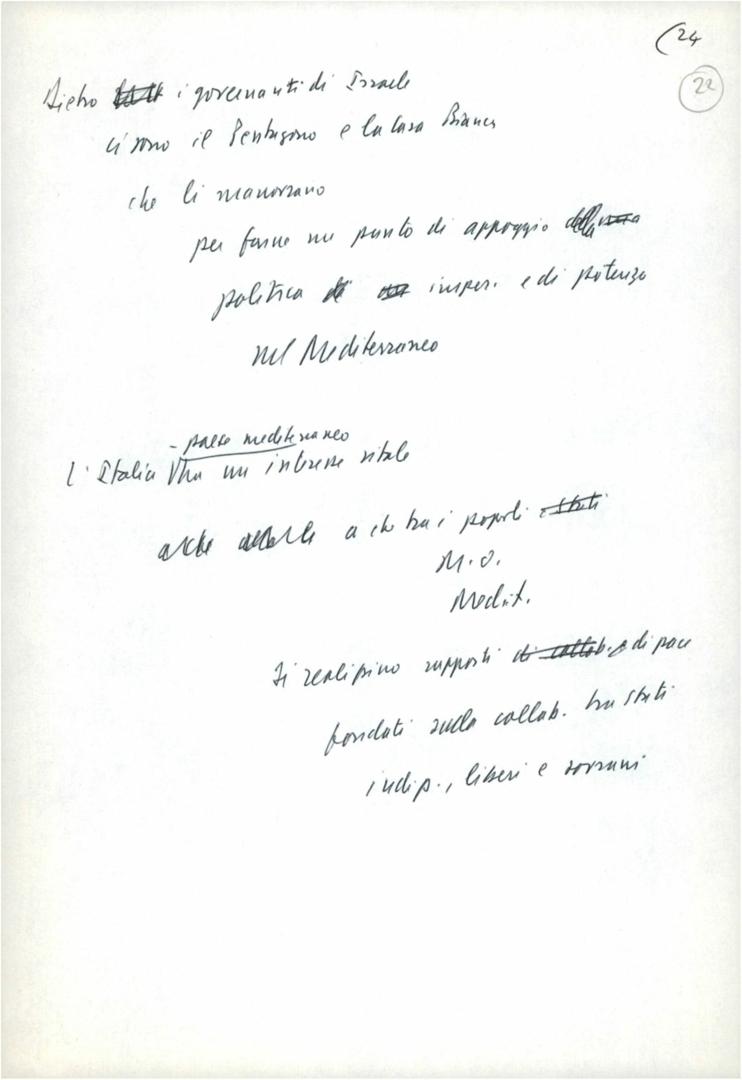 (24
22
Dietro i governanti di Israele
ci sono il Pentagono e la Casa Bianca
che li manovrano
per farne un punto di appoggio della
politica imper. e di potenza
nel Mediterraneo
- paese mediterraneo
L'Italia ha un interesse vitale
a che tra i popoli e Stati
M.O.
Medit.
si realizzino rapporti di collab. e di pace
fondati sulla collab. tra Stati
indip., liberi e sovrani